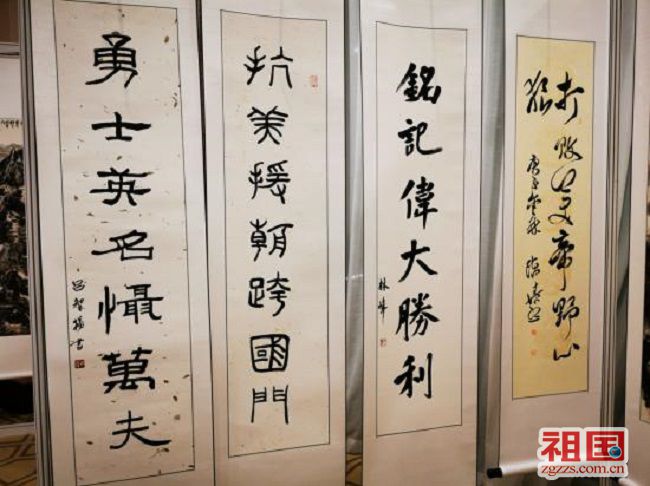 打敗美帝野心
狼
銘記偉大勝利
林峰
抗美援朝跨國門
勇士英名懾萬夫
祖国
zgzzs.com.cn